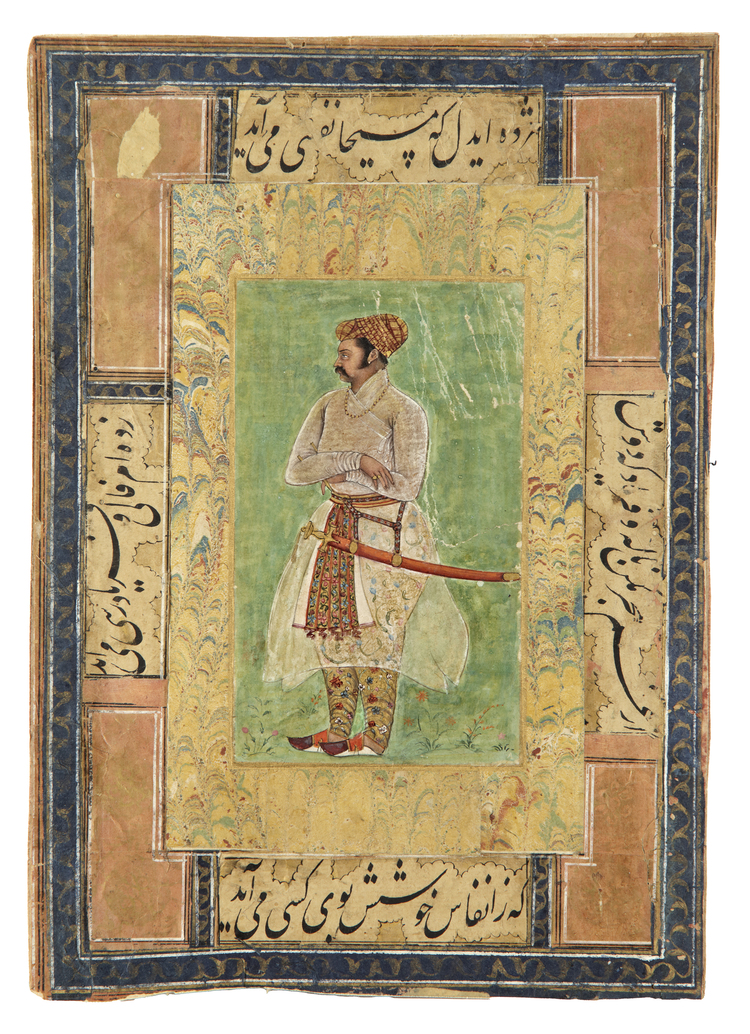 مژده ایدل که مسیحا نفسی می آید
که ز انفاس خوشش بوی کسی می آید
از غم هجر مکن ناله و فریاد که دوش
زده ام فالی و فریادرسی می آید